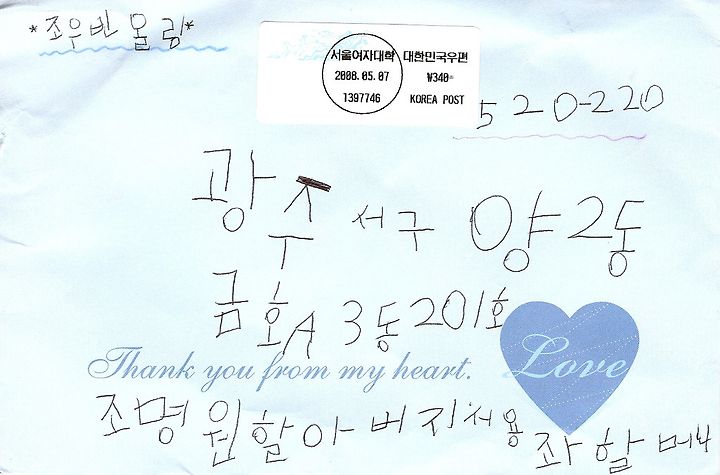 *조우빈 올림*
서울여자대학 대한민국우편
2008.05.07 ₩340
1397746 KOREA POST
520-220
광주 서구 양2동
금호A 3동201호
Thank you from my heart. Love
조명원할아버지서용좌할머니